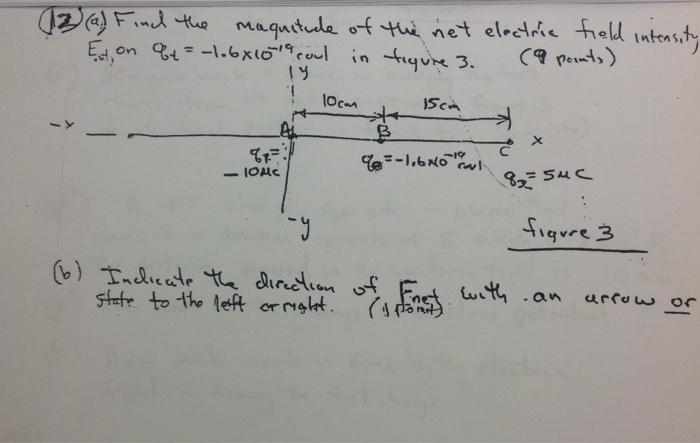 12) (a) Find the magnitude of the net electric field intensity
on qt = -1.6x10^-19 coul in figure 3. (9 points)
y
10cm 15cm
-x A B C x
q1= -10μC
= -1.6x10^-19 coul
q2= 5μC
-y
figure 3
(b) Indicate the direction of Fnet with an arrow or
state to the left or right. (1 point)